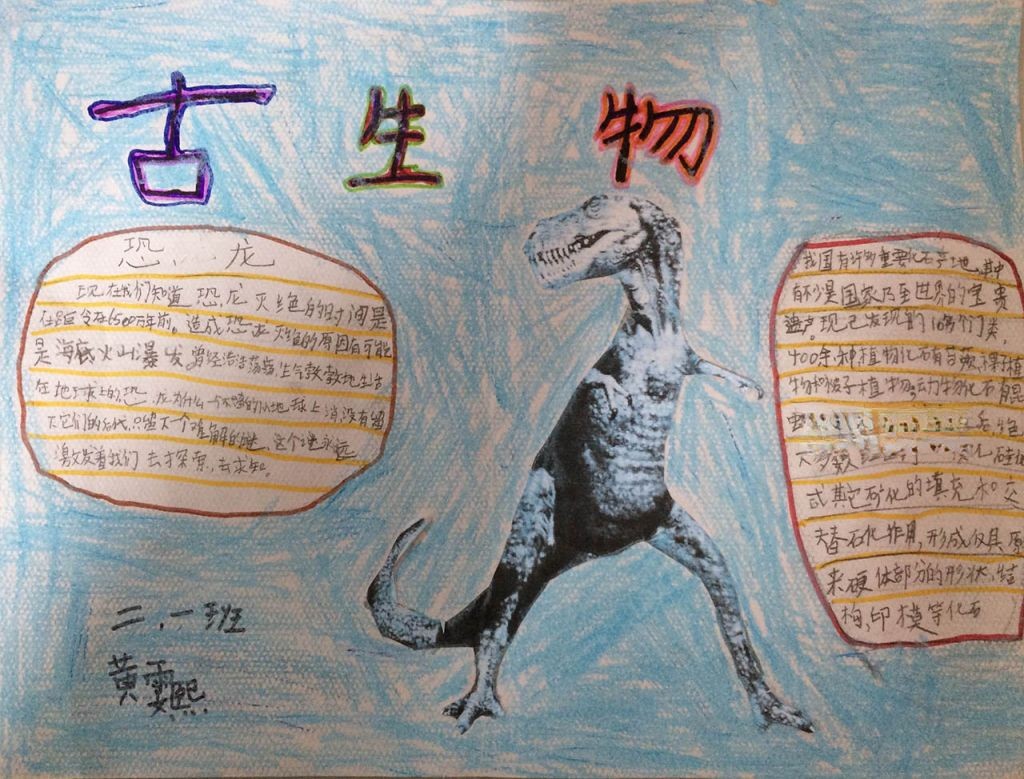 古生物
恐龙
现在我们知道恐龙灭绝的时间是
在距今6500万年前。造成恐龙灭绝的原因有可能
是海底火山瀑发。曾经浩浩荡荡,生气勃勃地生活
在地球上的恐龙为什么一个不留的从地球上消,没有留
大它们的后代,只留大一个难解的谜,这个谜永远
激发着我们去探索,去求知。
我国有许多重要化石产地,其中
有不少是国家乃至世界的宝贵
遗产现已发现的16个门类,
400余种植物化石有苔藓,裸子植
物和被子植物。动物化石有昆
虫
大多数
或其它矿化的填充和交
替石化作用,形成仅具原
来硬体部分的形状,结
构,印模等化石
二.一班
黄雯熙